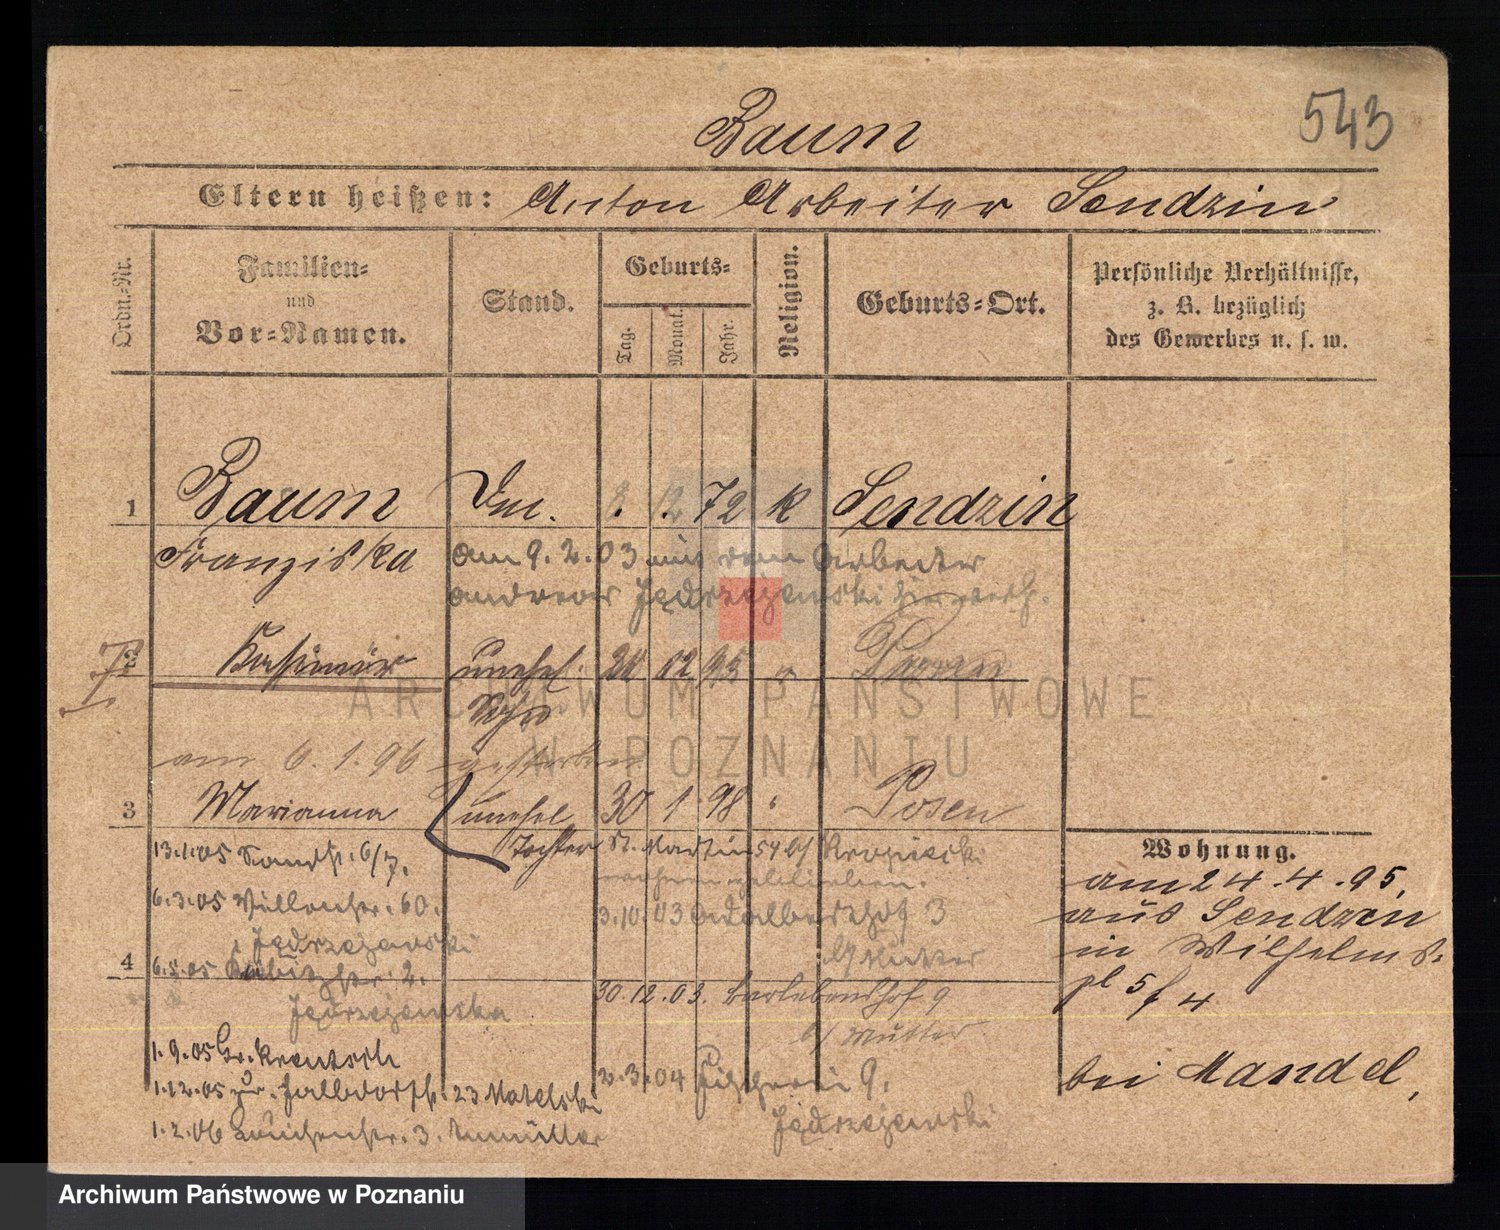 543
Baum
Eltern heißen: Anton Arbeiter Sendzin
Ordn.-Nr.
Familien- und Vor-Namen.
Stand.
Geburts-
Tag.
Monat.
Jahr.
Religion.
Geburts-Ort.
Persönliche Verhältnisse, z. B. bezüglich des Gewerbes u. s. w.
1 Baum 8. 12 72 k Sendzin
Franziska am 9.2.03 mit dem Arbeiter
Andreas Jędrzejewski hier verh.
2 Kasimir unehel. 20 02 95 " Posen
Sohn
am 6.1.96 gestorben
3 Marianna unehel 30 1 98 " Posen
Tochter St. Martin 54 b/ Kropicki
13.1.05 6/7.
6.3.05 60.
Jędrzejewski
3.10.03 Adalbertshof 3
b/ Mutter
4 6.5.05 2.
Jędrzejewska
30.12.03. 9
b/ Mutter
1.9.05 Gr. Kreutsch
2.3.04 Fischerei 9.
Jędrzejewski
1.12.05 zur. 23 Matelski
1.2.06 3.
Wohnung.
am 24.4.95.
aus Sendzin
in Wilhelms.
pl 5 f 4
bei Mandel,
ARCHIWUM PAŃSTWOWE
W POZNANIU
Archiwum Państwowe w Poznaniu